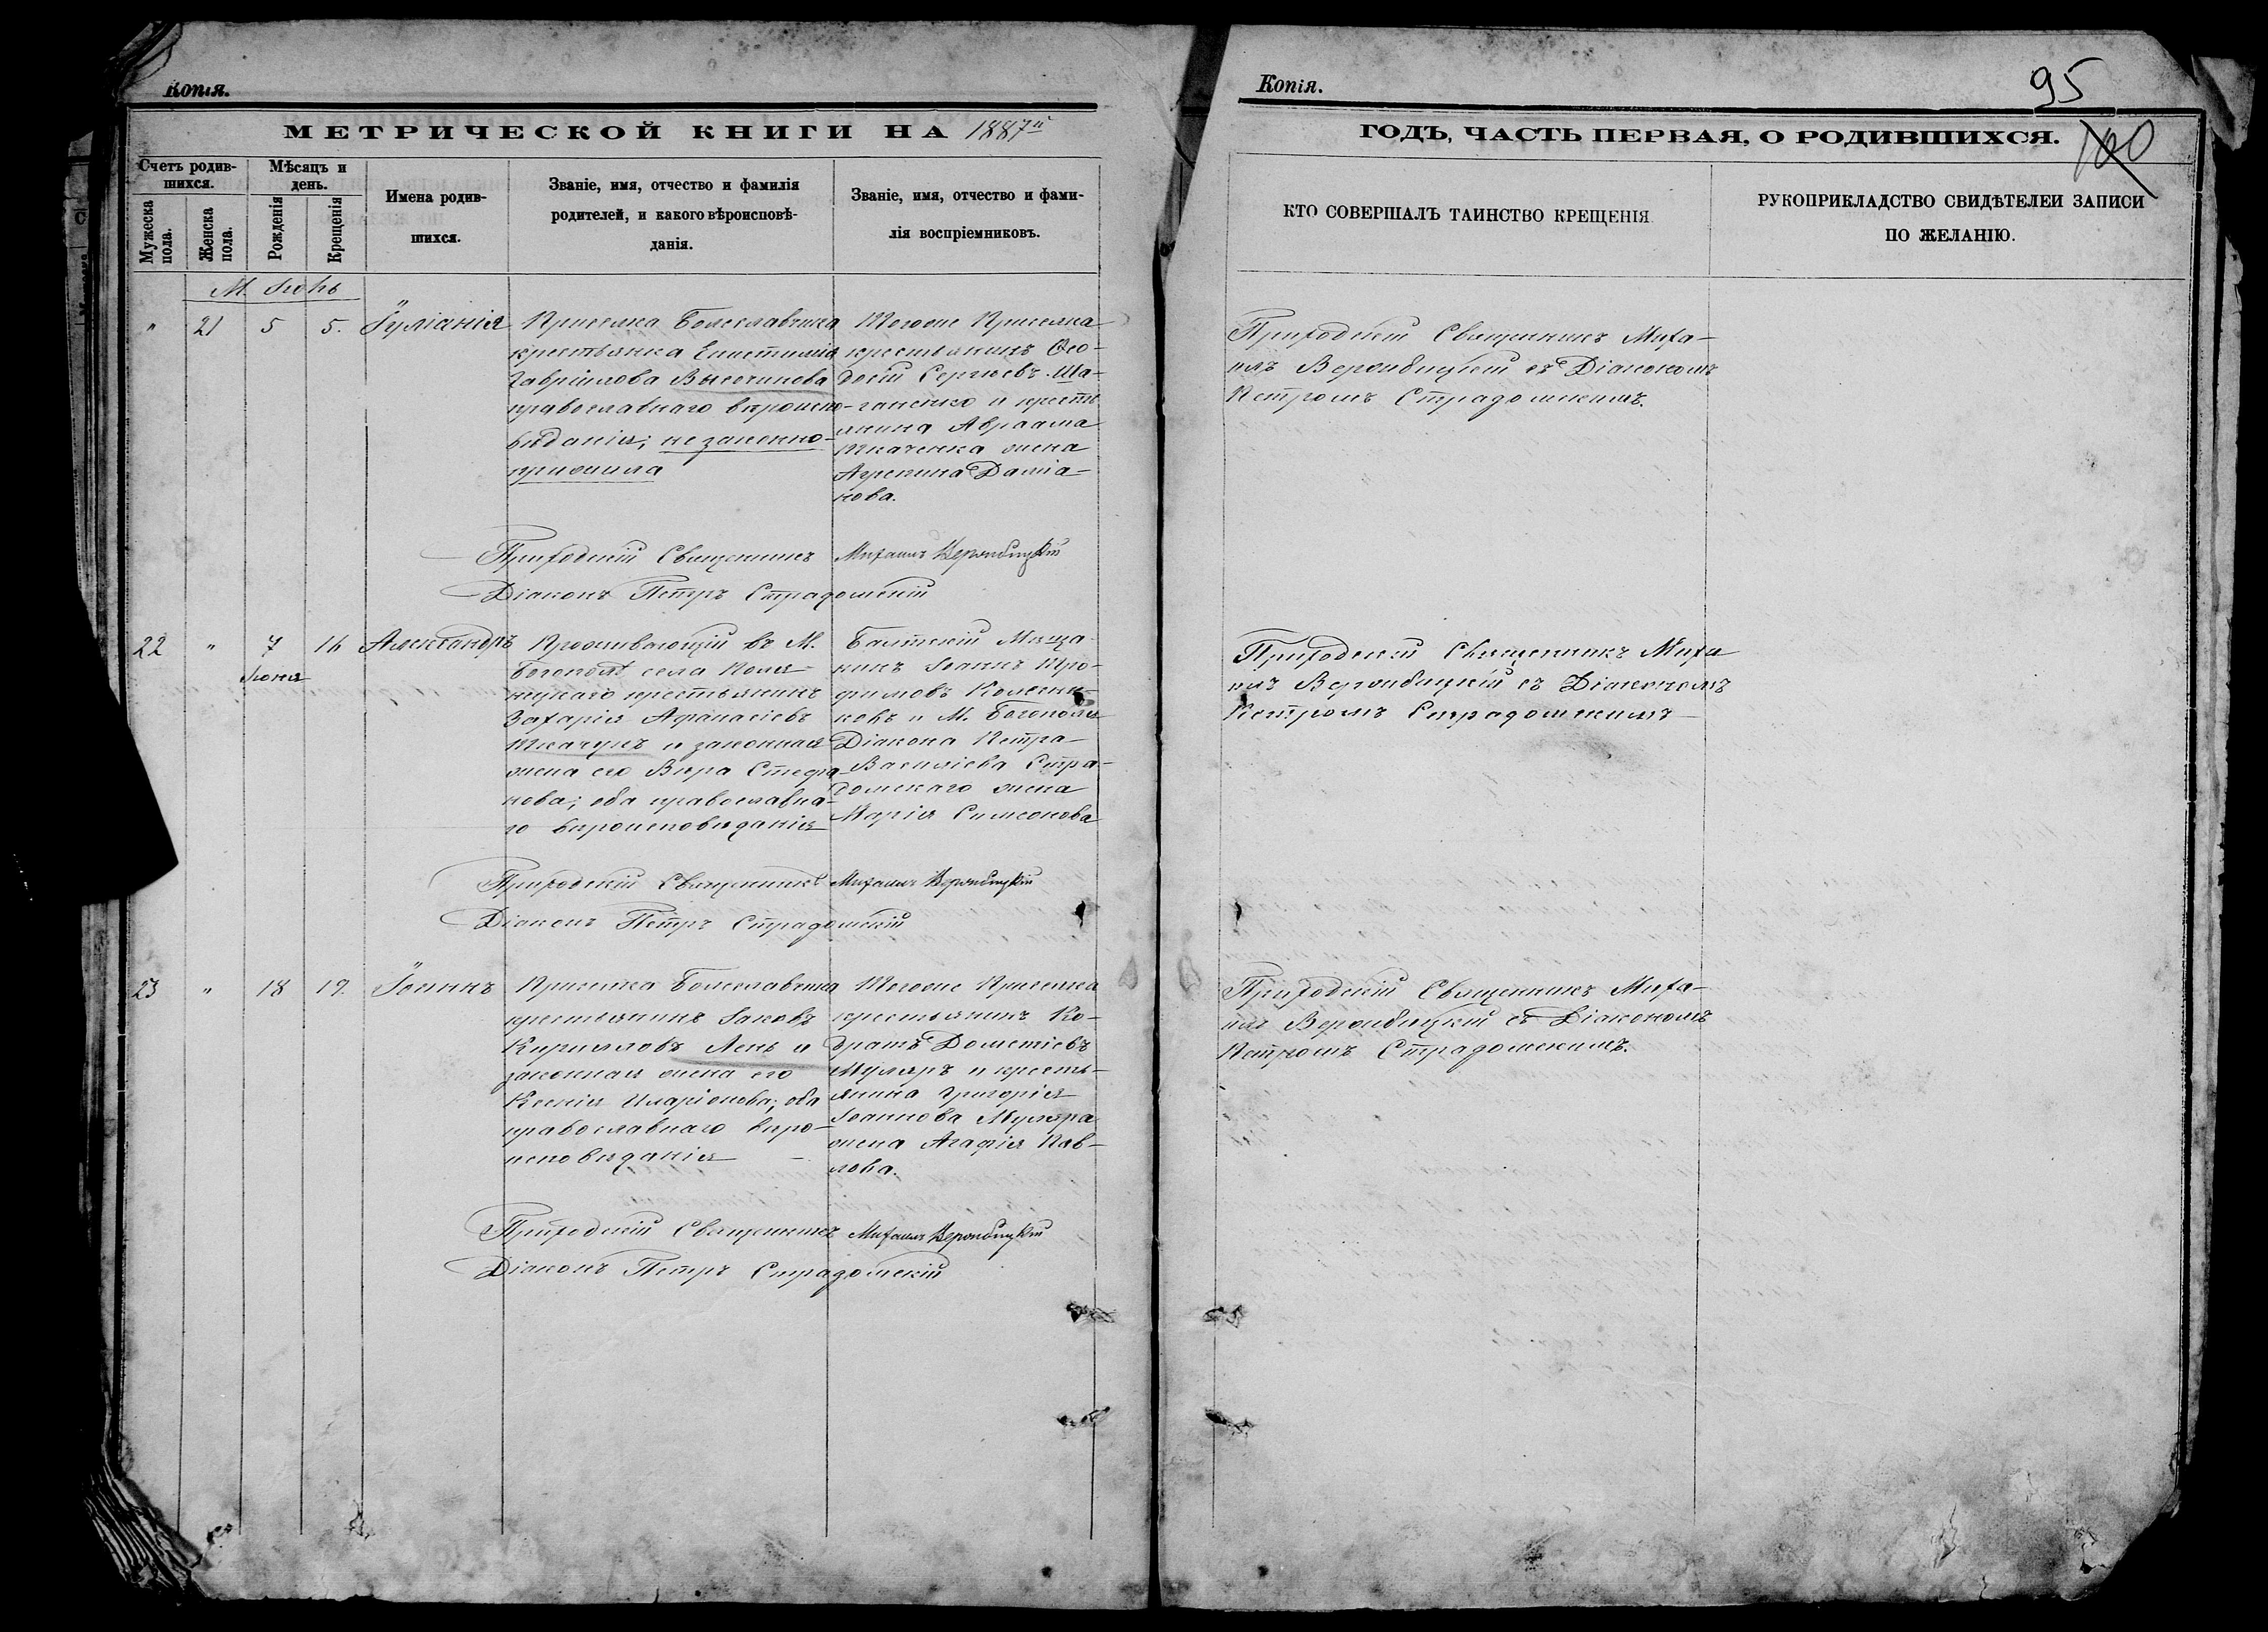 Копія.
МЕТРИЧЕСКОЙ КНИГИ НА 1887й
Счетъ родив-
шихся.
Мѣсяцъ и
день.
Мужеска
пола.
Женска
пола.
Рожденія
Крещенія
Имена родив-
шихся.
Званіе, имя, отчество и фамилія
родителей, и какого вѣроисповѣ-
данія.
Званіе, имя, отчество и фами-
лія воспріемниковъ.
М.
" 21 5 5. Іуліанія
Приселка Болеславчика
крестьянка Епистимія
Гавріилова Высочинова
православнаго вѣроиспо-
вѣданія; незаконно-
прижила
Тогоже Приселка
крестьянинъ Ѳео-
досій Сергіевъ Ша-
ганенко и кресть
янина Авраама
Ткаченка жена
Агрепина Даміа-
нова.
Приходскій Священникъ Михаилъ Вербицкій
Діаконъ Петръ Страдомскій
22 " 7 16 Александръ
Іюня
Проживающій въ М.
Богополѣ села
крестьянинъ
Захарія Афанасіевъ
Ткачукъ и законная
жена его Вѣра Стефа-
нова; оба православна-
го вѣроисповѣданія
Балтскій Мѣща-
нинъ Іоаннъ Тро-
фимовъ Колесни-
ковъ и М. Богополя
Діакона Петра
Василіева Стра-
домскаго жена
Марія Симеонова
Приходскій Священникъ Михаилъ
Діаконъ Петръ Страдомскій
23 " 18 19. Іоаннъ
Приселка Болеславчика
крестьянинъ Іаковъ
Кирилловъ Лень и
законная жена его
Ксенія Иларіонова; оба
православнаго вѣро-
исповѣданія
Тогоже Приселка
крестьянинъ Ко-
дратъ Дометіевъ
Муляръ и кресть-
янина Григорія
Іоаннова Муляра
жена Агафія Пав-
лова.
Приходскій Священникъ Михаилъ
Діаконъ Петръ Страдомскій
Копія.
95
100
ГОДЪ, ЧАСТЬ ПЕРВАЯ, О РОДИВШИХСЯ.
КТО СОВЕРШАЛЪ ТАИНСТВО КРЕЩЕНІЯ
РУКОПРИКЛАДСТВО СВИДѢТЕЛЕЙ ЗАПИСИ
ПО ЖЕЛАНІЮ.
Приходскій Священникъ Миха-
илъ съ Діакономъ
Петромъ Страдомскимъ.
Приходскій Священникъ Миха
илъ съ Діакономъ
Петромъ Страдомскимъ
Приходскій Священникъ Миха-
илъ съ Діакономъ
Петромъ Страдомскимъ.